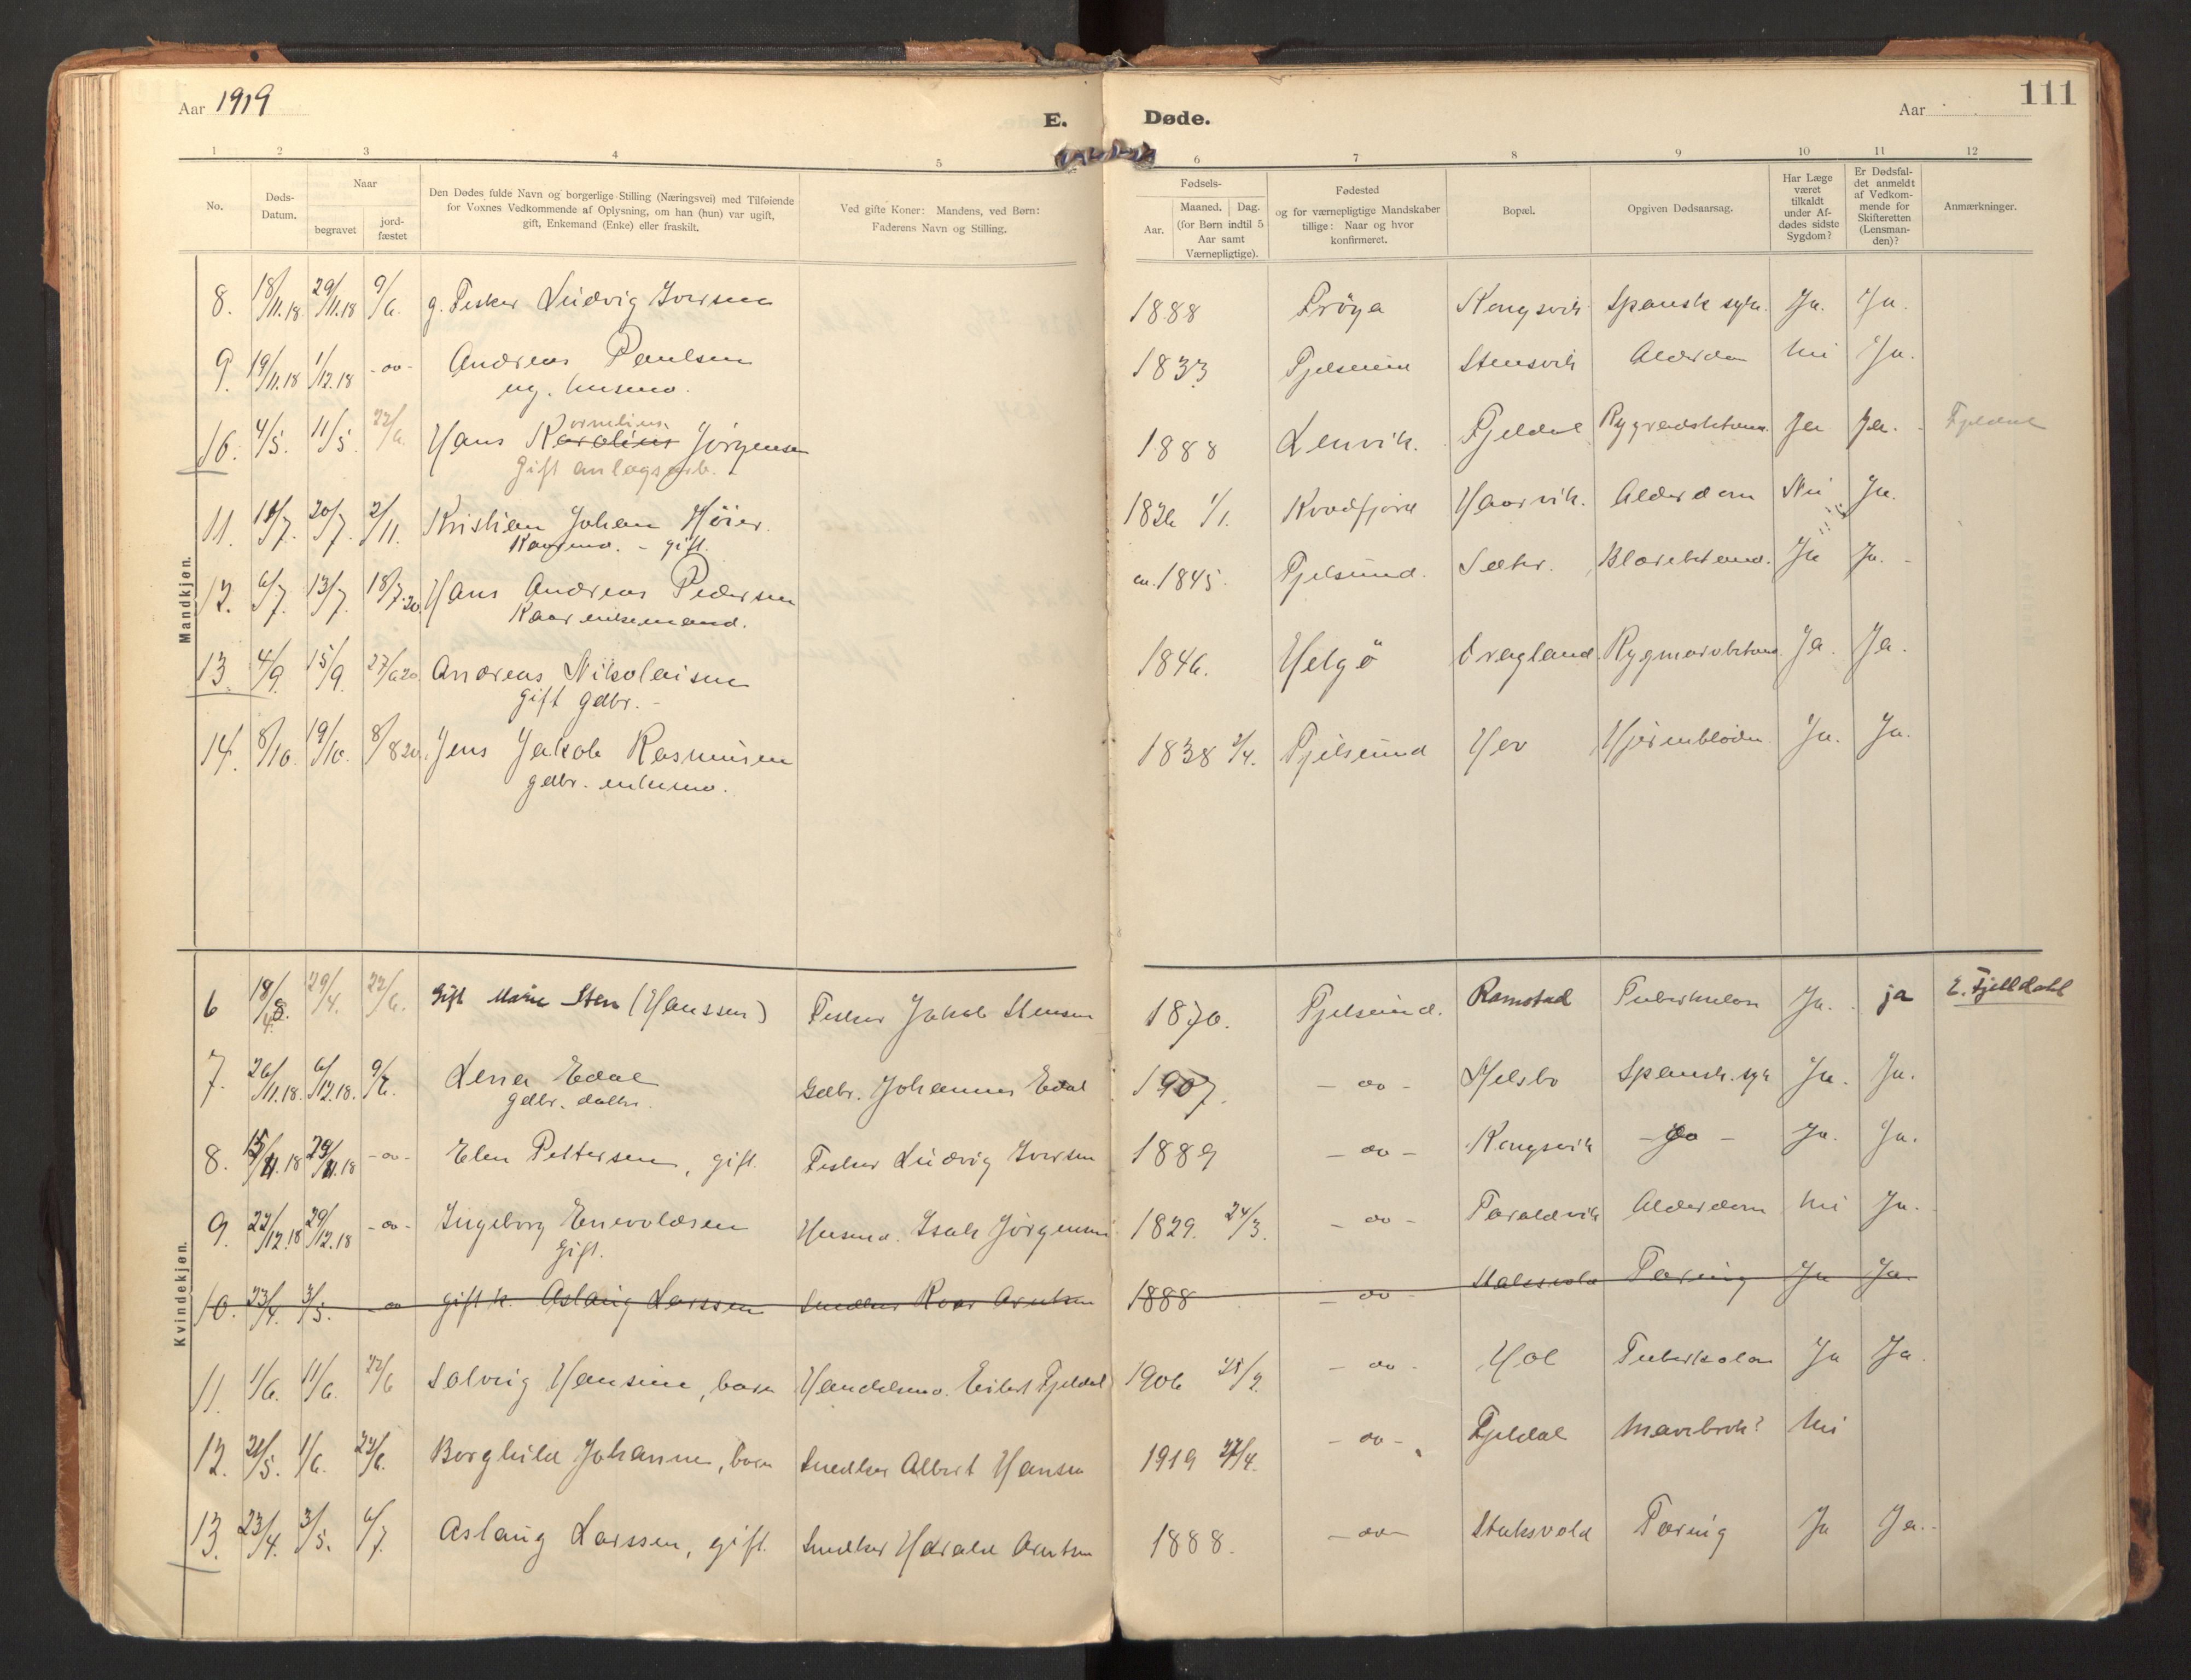 Aar 1919 E. Døde. Aar 111
1 2 3 4 5 6 7 8 9 10 11 12
No. Døds-Datum. Naar begravet jord-fæstet Den Dødes fulde Navn og borgerlige Stilling (Næringsvei) med Tilføiende for Voxnes Vedkommende af Oplysning, om han (hun) var ugift, gift, Enkemand (Enke) eller fraskilt. Ved gifte Koner: Mandens, ved Børn: Faderens Navn og Stilling. Fødsels- Aar. Maaned. Dag. (for Børn indtil 5 Aar samt Værnepligtige). Fødested og for værnepligtige Mandskaber tillige: Naar og hvor konfirmeret. Bopæl. Opgiven Dødsaarsag. Har Læge været tilkaldt under Afdødes sidste Sygdom? Er Dødsfaldet anmeldt af Vedkommende for Skifteretten (Lensmanden)? Anmærkninger.
Mandkjøn.
8. 18/11.18 29/11.18 9/6. g. Fisker Ludvig Iversen 1888 Frøya Kongsvik Spansk syk. Ja. Ja.
9. 19/11.18 1/12.18 -oo- Andreas Paulsen 1833 Fjelsund Stensvik Alderdom Nei Ja.
ug. husmd.
10. 4/5. 11/5. 22/6. Hans Karolius Jørgensen 1888 Lenvik. Fjeldal Ja Ja. Fjeldal
ornelius
Gift anlægsarb.
11. 11/7. 20/7. 2/11. Kristian Johan Høier. 1826 1/1. Kvædfjord Haarvik. Alderdom Nei Ja.
Kaarmd. - gift.
12. 6/7. 13/7. 18/7.20. Hans Andreas Pedersen ca. 1845. Fjelsund. Sæter. Ja Ja. -
Kaarenkemand.
13. 4/9. 15/9. 27/6 20. Andreas Nikolaisen 1846. Helgö Dragland. Ja. Ja.
gift gdbr. -
14. 8/10. 19/10. 8/8 20. Jens Jakob Rasmussen 1838 2/4. Fjelsund Hov Ja. Ja.
gdbr. enkemd.
Kvindekjøn.
6 18/4. 29/4. 22/6. Gift Marie Sten (Hanssen) Fisker Jakob Stensen 1870. Fjelsund. Ramstad Tuberkulose Ja. ja E. Fjelldahl
7. 26/11.18. 6/12.18. 9/6. Lena Edal Gdbr. Johannes Edal 1907. - oo - Spansk. syk Ja. Ja.
gdbr. datter.
8. 15/11.18 29/11.18 -oo- Elen Pettersen, gift. Fisker Ludvig Iversen 1889 - oo - Kongsvik - oo - Ja. Ja.
9. 22/12.18 29/12.18 -oo- Ingeborg Enevoldsen Husmd. Isak Jørgensen 1829. 24/3. - oo - Taraldvik Alderdom Nei Ja.
gift.
10. 23/4. 3/5. - oo gift k. Aslaug Larssen Snedker Roar Arntsen 1888 - oo - Staksvold Tæring Ja Ja.
11. 1/6. 11/6. 22/6 Solveig Hansine, barn Handelsmd. Eilert Fjeldal 1906 - oo - Hol Tuberkulose Ja Ja.
12. 21/5. 1/6. 22/6. Borghild Johanne, barn Snedker Albert Hansen 1919 27/4. - oo - Fjeldal Mavebrok? Nei
13. 23/4. 3/5. 6/7. Aslaug Larssen, gift. Snedker Harald Arntsen 1888. - oo - Staksvold Tæring Ja Ja. -